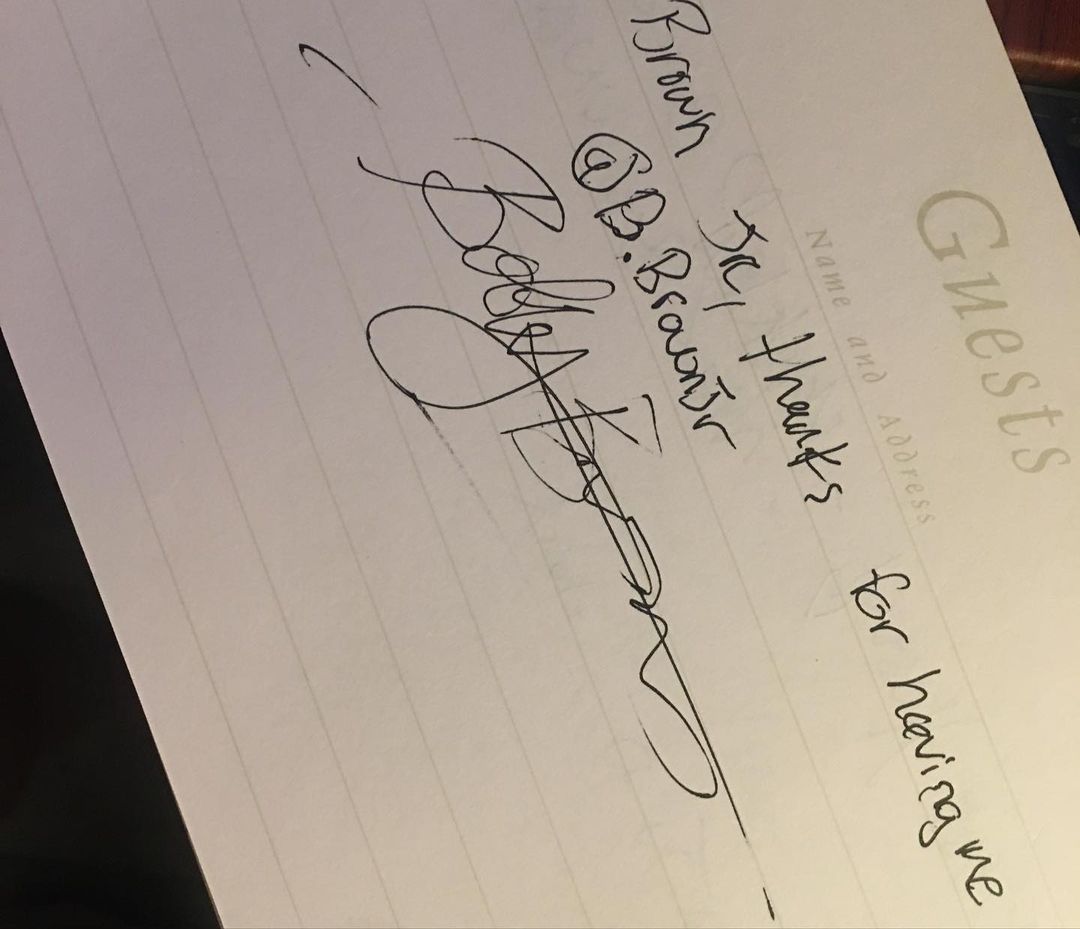 Guests
Name and Address
Brown Jr, thanks for having me
@B.BrownJr
Bobby Brown